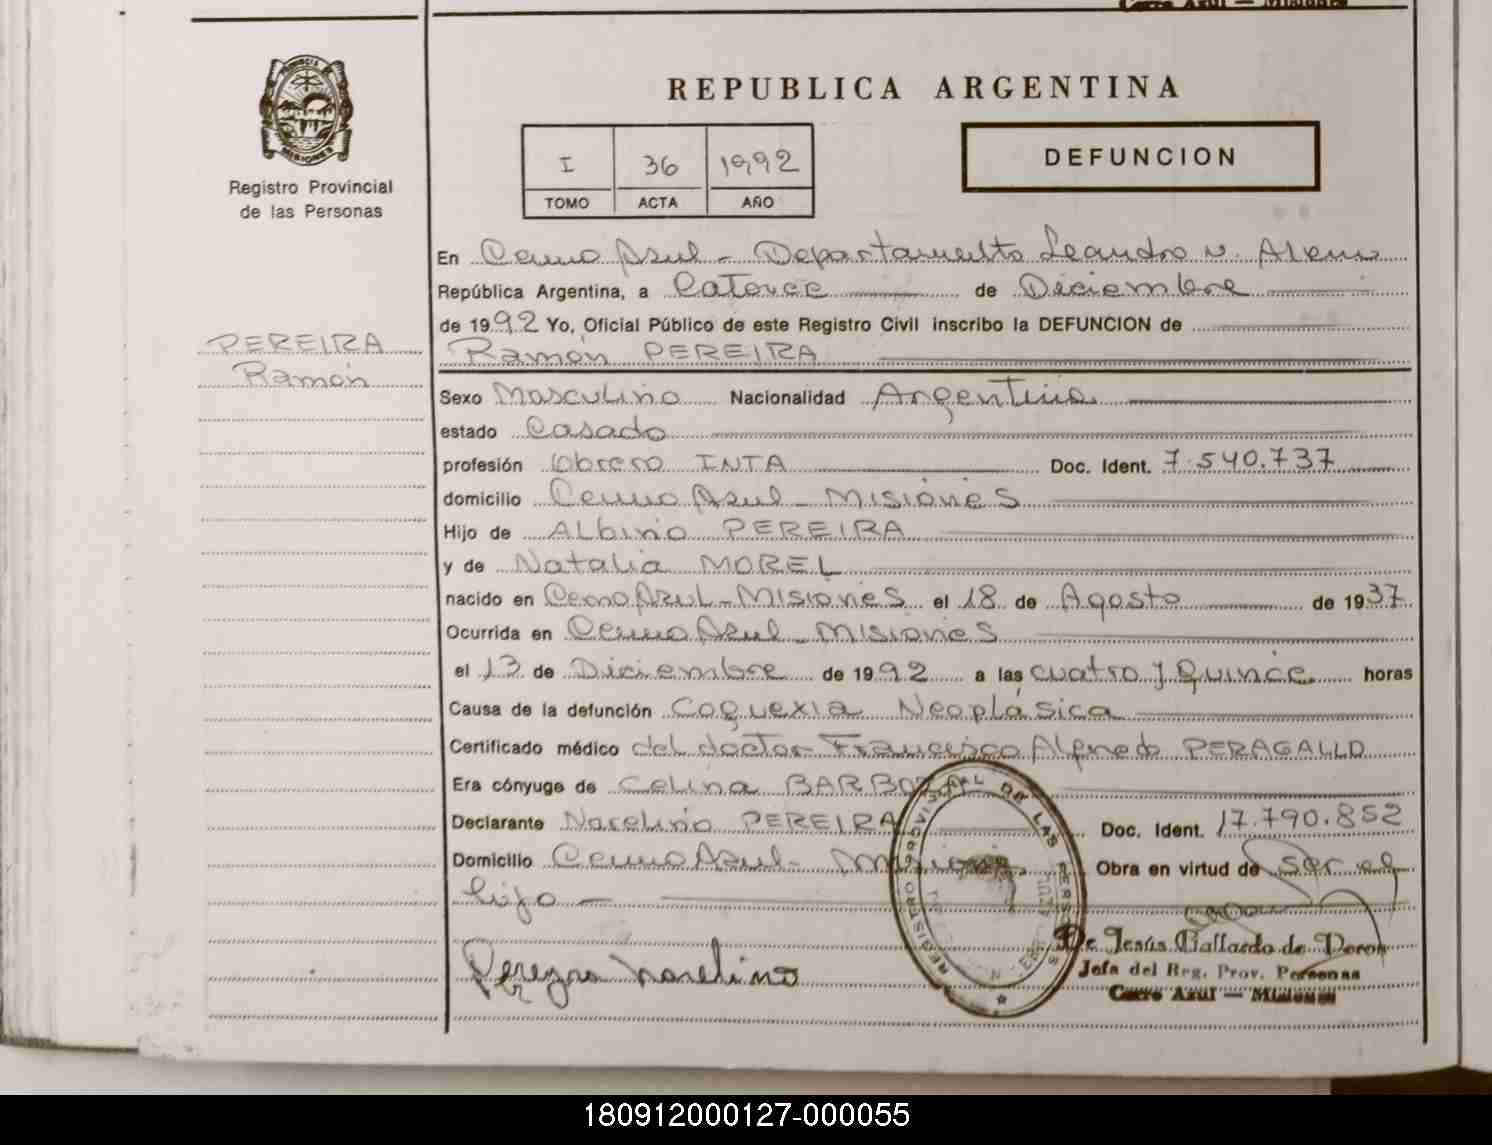 Cerro Azul — Misiones
PROVINCIA DE
MISIONES
Registro Provincial
de las Personas
REPUBLICA ARGENTINA
I 36 1992
TOMO ACTA AÑO
DEFUNCION
PEREIRA
Ramón
En Cerro Azul - Departamento Leandro N. Alem
República Argentina, a Catorce de Diciembre
de 1992 Yo, Oficial Público de este Registro Civil inscribo la DEFUNCION de
Ramón PEREIRA
Sexo Masculino Nacionalidad Argentina
estado Casado
profesión Obrero INTA Doc. Ident. 7.540.737
domicilio Cerro Azul - Misiones
Hijo de Albino PEREIRA
y de Natalia MOREL
nacido en Cerro Azul - Misiones el 18 de Agosto de 1937
Ocurrida en Cerro Azul - Misiones
el 13 de Diciembre de 1992 a las cuatro y Quince horas
Causa de la defunción Coquexia Neoplásica
Certificado médico del doctor Francisco Alfredo PERAGALLO
Era cónyuge de Celina BARBOZA
Declarante Narcelino PEREIRA Doc. Ident. 17.790.852
Domicilio Cerro Azul - Misiones Obra en virtud de ser el
hijo -
REGISTRO PROVINCIAL DE LAS PERSONAS
De Jesús Gallardo de Doron
Jefa del Reg. Prov. Personas
Cerro Azul — Misiones
180912000127-000055